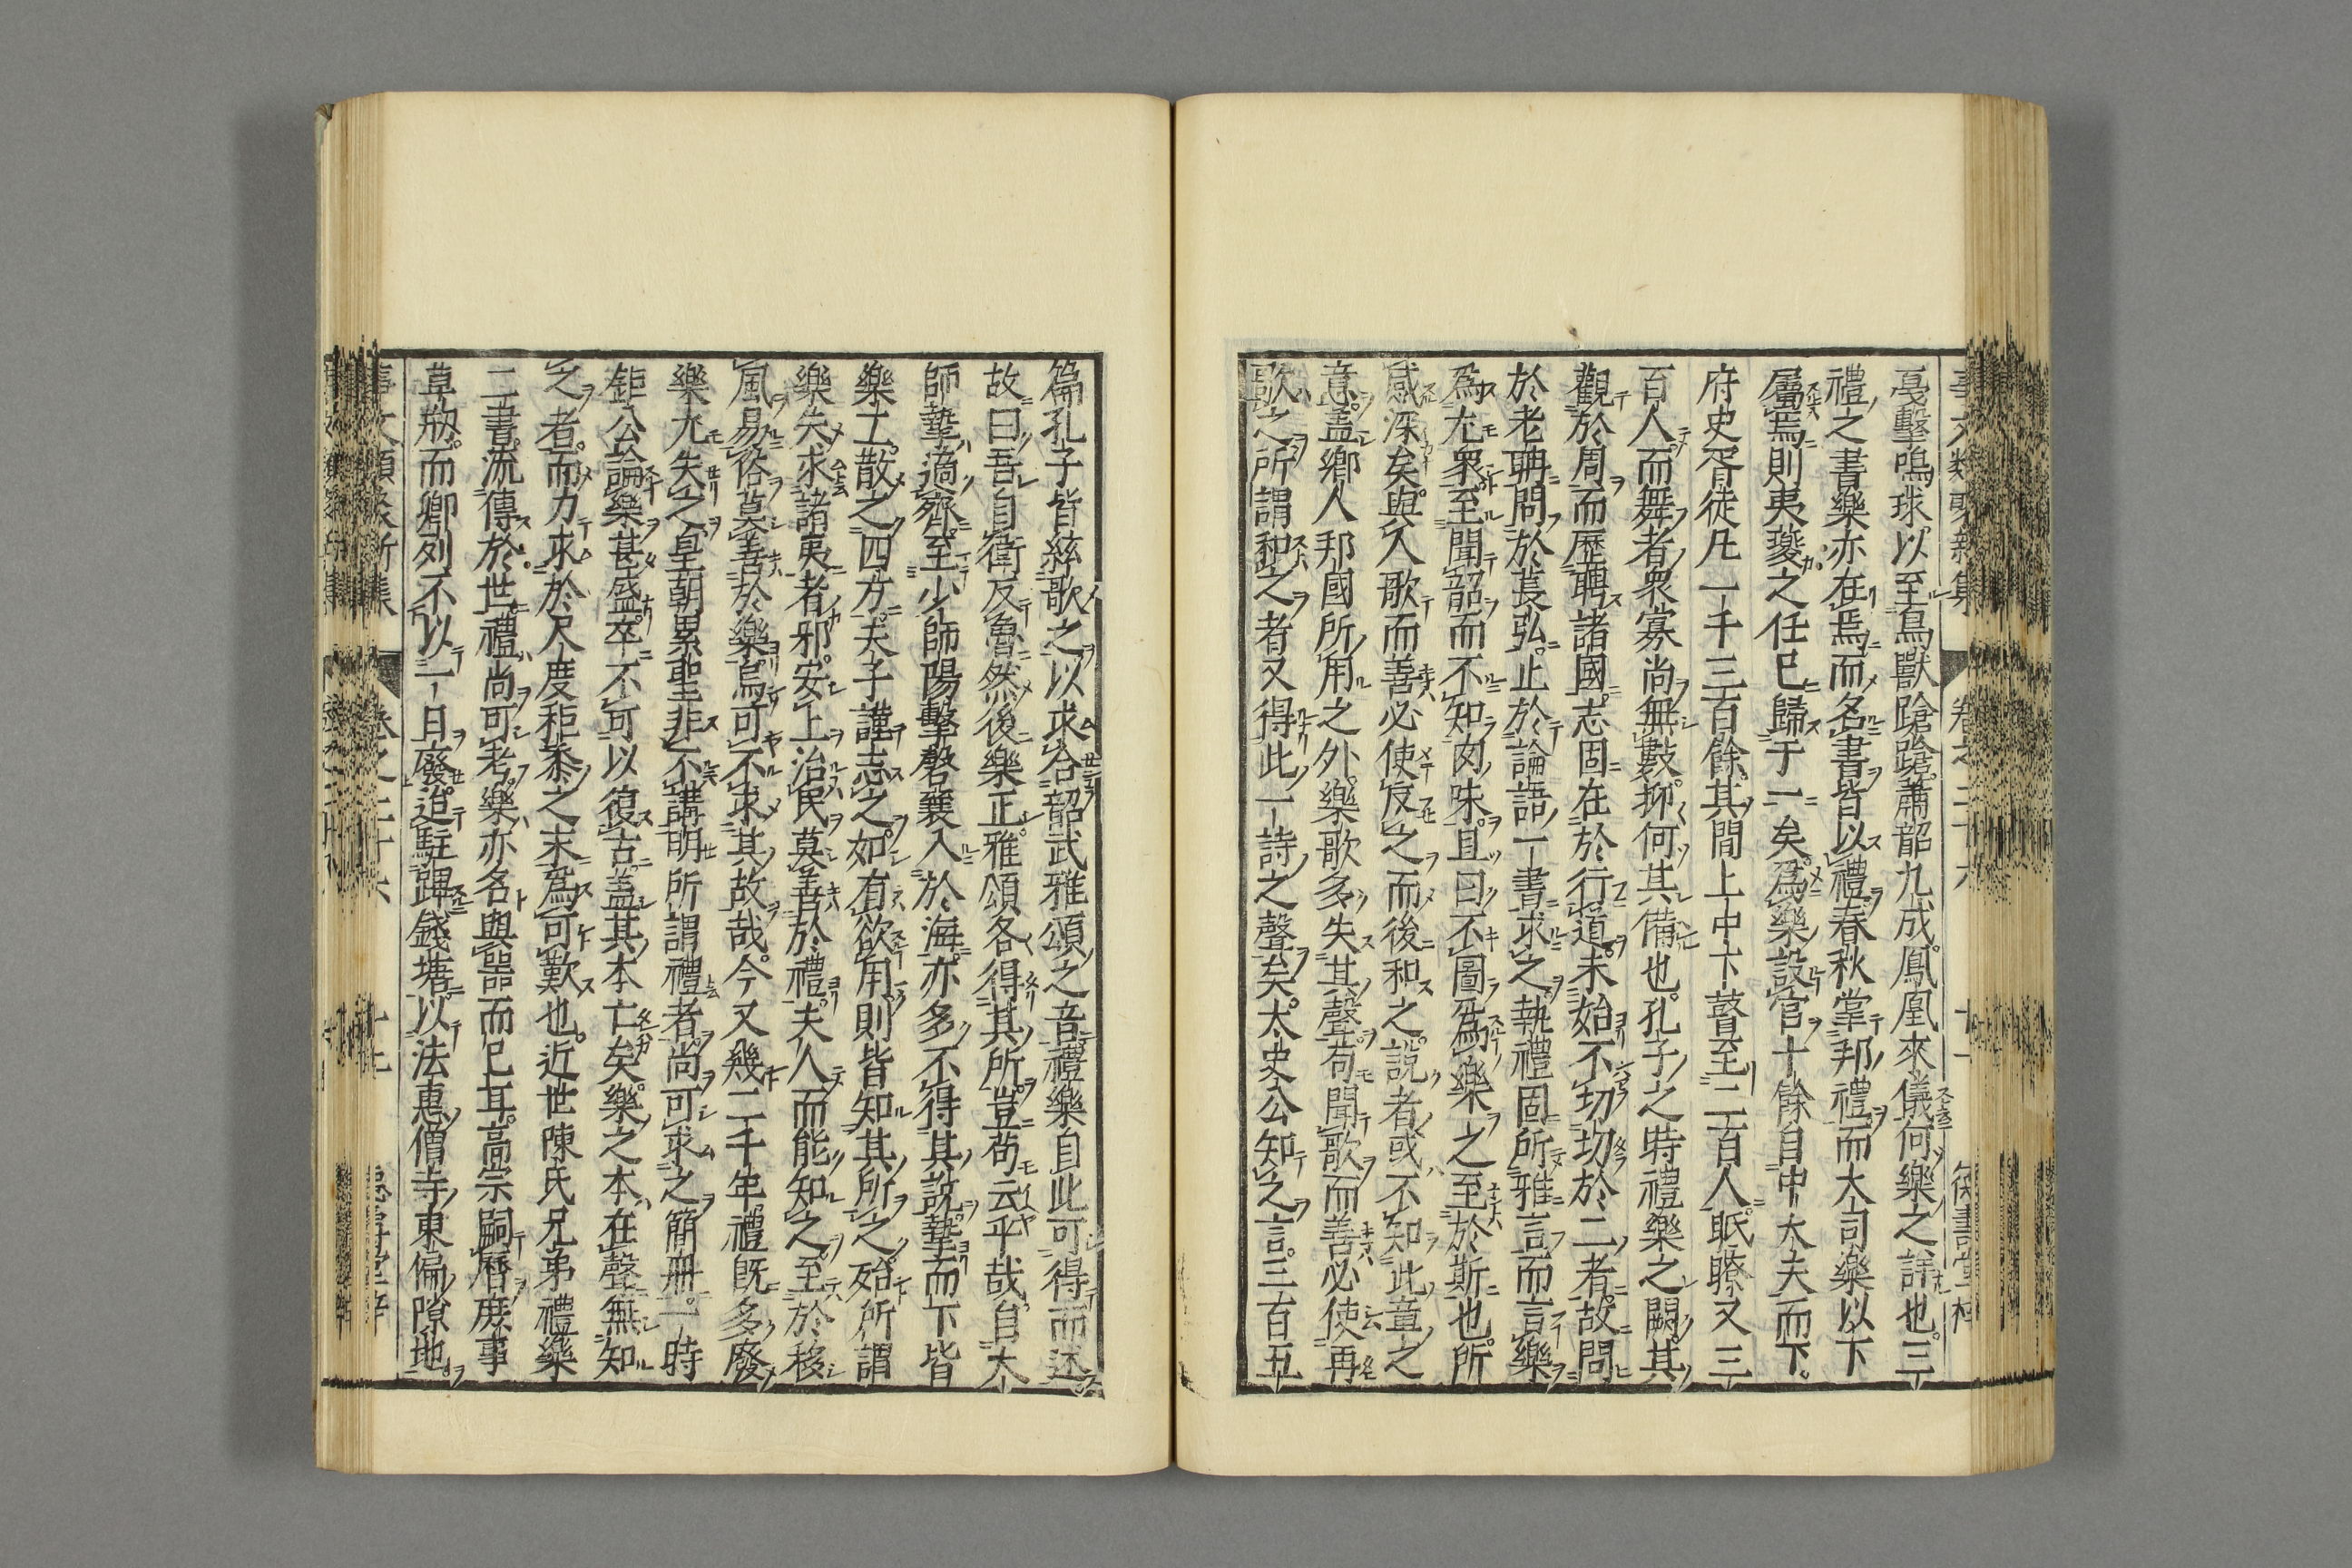 戞擊鳴球以至鳥獸蹌蹌蕭韶九成鳳凰來儀何樂之詳也三
禮之書樂亦在焉而名書皆以禮春秋掌邦禮而大司樂以下
屬焉則夷夔之任已歸于一矣爲樂設官十餘自中大夫而下
府史胥徒凡一千三百餘其間上中下瞽至二百人眡瞭又三
百人而舞者衆寡尚無數抑何其備也孔子之時禮樂之闕其
觀於周而歷聘諸國志固在於行道未始不切切於二者故問
於老聃問於萇弘止於論語一書求之執禮固所雅言而言樂
爲尤衆至聞韶而不知肉味且曰不圖爲樂之至於斯也所
感深矣與人歌而善必使反之而後和之說者或不知此章之
意蓋鄉人邦國所用之外樂歌多失其聲苟聞歌而善必使再
歌之所謂和之者又得此一詩之聲矣太史公知之言三百五
篇孔子皆絃歌之以求合韶武雅頌之音禮樂自此可得而述
故曰吾自衛反魯然後樂正雅頌各得其所豈苟云乎哉自太
師摯適齊至少師陽擊磬襄入於海亦多不得其說摯而下皆
樂工散之四方夫子謹志之如有欲用則皆知其所之殆所謂
樂失求諸夷者邪安上治民莫善於禮夫人而能知之至於移
風易俗莫善於樂烏可不求其故哉今又幾二千年禮既多廢
樂尤失之皇朝累聖非不講明所謂禮者尚可求之簡冊一時
鉅公論樂甚盛卒不可以復古蓋其本亡矣樂之本在聲無知
之者而力求於尺度秬黍之末爲可歎也近世陳氏兄弟禮樂
二書流傳於世禮尚可考樂亦名與器而已耳高宗嗣曆庶事
草剏而卿列不以一日廢迨駐蹕錢塘以法惠僧寺東偏隙地